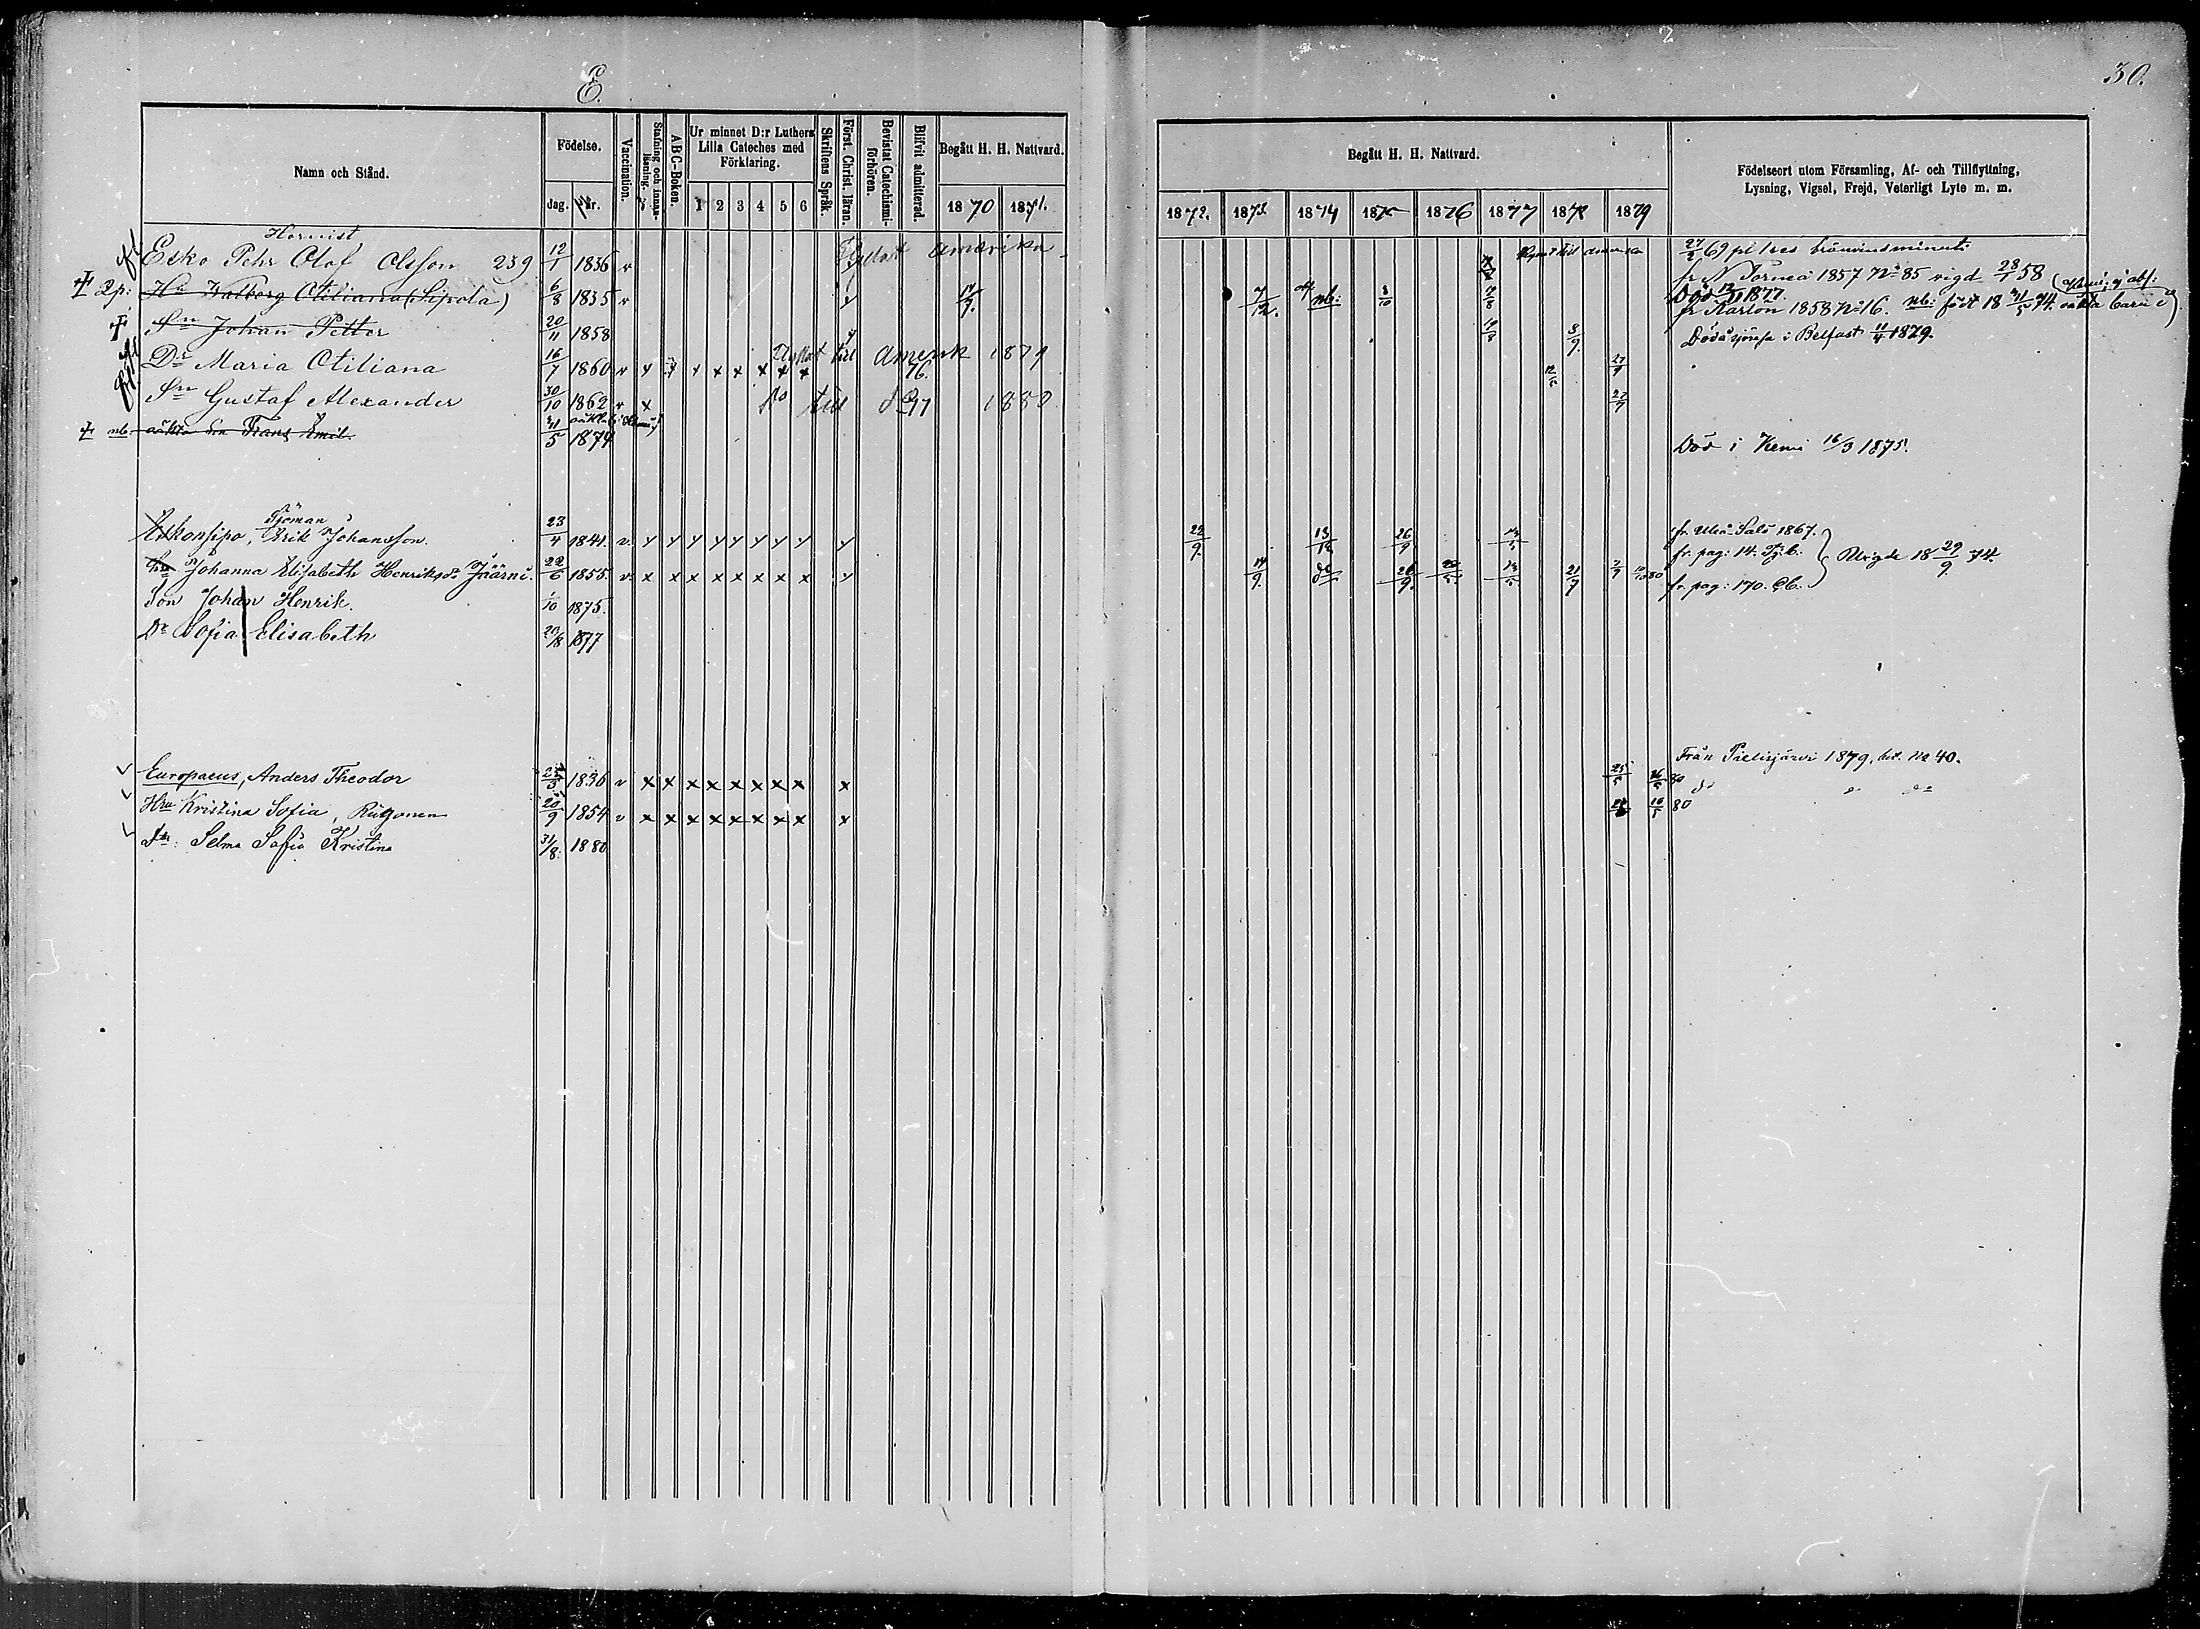 E.
30.
Namn och Stånd.
Födelse.
dag.
år.
Vaccination.
Stafning och innanläsning.
ABC-Boken.
Ur minnet D:r Luthers Lilla Cateches med Förklaring.
1 2 3 4 5 6
Skriftens Språk.
Först. Christ. läran.
Bevistat Catechismi-förhören.
Blifvit admitterad.
Begått H. H. Nattvard.
1870 1871.
Begått H. H. Nattvard.
1872. 1873. 1874 1875 1876 1877 1878 1879
Födelseort utom Församling, Af- och Tillflyttning,
Lysning, Vigsel, Frejd, Veterligt Lyte m. m.
Hornist
Esko Pehr Olof Olsson 239 12/1 1836 v Flyttat Amerika
27/2 69 pl
H:u Walborg Otiliana (Sipola) 6/8 1835 v y 17/9. 7/12. nb: 3/10
fr N Torneå 1857 No 85 vigd 28/1 58
Död 1877.
fr Karlön 1858 No 16. nb: född 18 31/5 74. oäkta barn
S:n Johan Petter 20/11 1858 y 8/9.
Död å sjöresa i Belfast 11/4 1879.
D:r Maria Otiliana 16/7 1860 v x x x x x x x Flyttat till Amerik 1879
S:n Gustaf Alexander 30/10 1862 v x till 1880 27/9
nb oäkta son Frans Emil. 31/5 1874
Död i Kemi 16/3 1875.
Sjöman
Eskonsipo, Erik Johansson. 23/4 1841. v y y y y y y y y y 22/9. 13/12 26/9
fr. Uleå Salo 1867.
fr. pag: 14.
H:u Johanna Elisabeth Henriksd:r Jäärni. 22/6 1855. v x x x x x x x x y 14/9. d:o 26/9. 21/7
fr. pag: 170. Vigde 18 29/9 74.
Son Johan Henrik. 1/10 1875.
D:r Sofia Elisabeth 20/8 1877
Europaeus, Anders Theodor 1836 v x x x x x x x x x 25/5 16/5 80
Från Pielisjärvi 1879, bet. No 40.
Hru Kristina Sofia, 20/9 1854 v x x x x x x x x x 16/5 80 d:o
Dtr: Selma Sofia Kristina 31/8. 1880